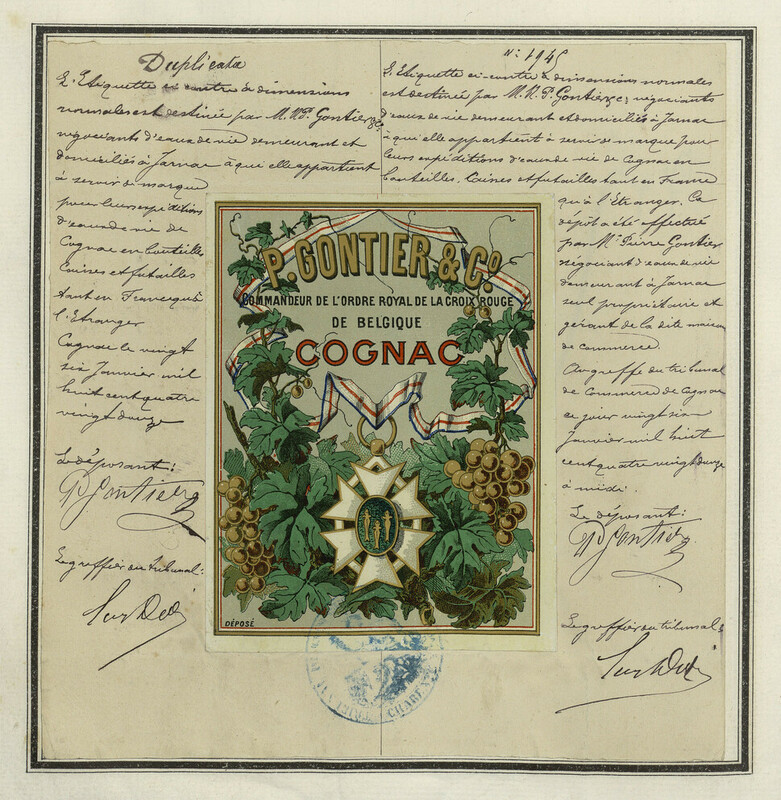 Duplicata
L'Etiquette ci-contre à dimensions
normales est destinée par M.M. P. Gontier & Cie
négociants d'eaux de vie demeurant et
domiciliés à Jarnac à qui elle appartient
à servir de marque
pour leurs expéditions
d'eaux de vie de
Cognac en bouteilles
Caisses et futailles
tant en France qu'à
l'Etranger
Cognac le vingt
six Janvier mil
huit cent quatre
vingt douze
Le déposant:
P Gontier
Le greffier du tribunal:
N° 1945
L'Etiquette ci-contre à dimensions normales
est destinée par M.M. P. Gontier & Cie négociants
d'eaux de vie demeurant et domiciliés à Jarnac
à qui elle appartient à servir de marque pour
leurs expéditions d'eaux de vie de Cognac en
bouteilles. Caisses et futailles tant en France
qu'à l'Etranger. Ce
dépôt a été effectué
par Mr Pierre Gontier
négociant d'eaux de vie
demeurant à Jarnac
seul propriétaire et
gérant de la dite maison
de commerce.
Au greffe du tribunal
de Commerce de Cognac
ce jour vingt six
Janvier mil huit
cent quatre vingt douze
à midi.
Le déposant:
P Gontier
Le greffier du tribunal:
P. GONTIER & Co.
COMMANDEUR DE L'ORDRE ROYAL DE LA CROIX ROUGE
DE BELGIQUE
COGNAC
DÉPOSÉ
CHARENTE